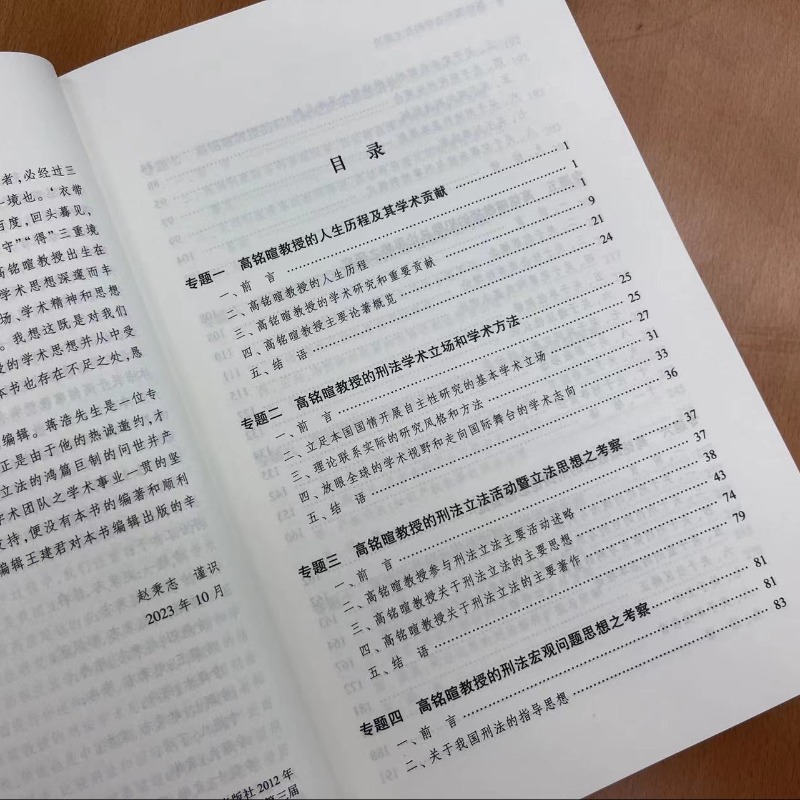 者，必经过三
一境也。‘衣带
百度，回头蓦见，
守”“得”三重境
高铭暄教授出生在
学术思想深邃而丰
场、学术精神和思想
。我想这既是对我们
授的学术思想并从中受
本书也存在不足之处，恳
编辑。蒋浩先生是一位专
正是由于他的热诚邀约，才
立法的鸿篇巨制的问世并产
学术团队之学术事业一贯的坚
支持，便没有本书的编著和顺利
编辑王建君对本书编辑出版的辛
赵秉志 谨识
2023年10月
出版社2012年
第三届
目 录
专题一 高铭暄教授的人生历程及其学术贡献 1
一、前 言 1
二、高铭暄教授的人生历程 1
三、高铭暄教授的学术研究和重要贡献 9
四、高铭暄教授主要论著概览 21
五、结 语 24
专题二 高铭暄教授的刑法学术立场和学术方法 25
一、前 言 25
二、立足本国国情开展自主性研究的基本学术立场 27
三、理论联系实际的研究风格和方法 31
四、放眼全球的学术视野和走向国际舞台的学术志向 33
五、结 语 36
专题三 高铭暄教授的刑法立法活动暨立法思想之考察 37
一、前 言 37
二、高铭暄教授参与刑法立法主要活动述略 38
三、高铭暄教授关于刑法立法的主要思想 43
四、高铭暄教授关于刑法立法的主要著作 74
五、结 语 79
专题四 高铭暄教授的刑法宏观问题思想之考察 81
一、前 言 81
二、关于我国刑法的指导思想 83